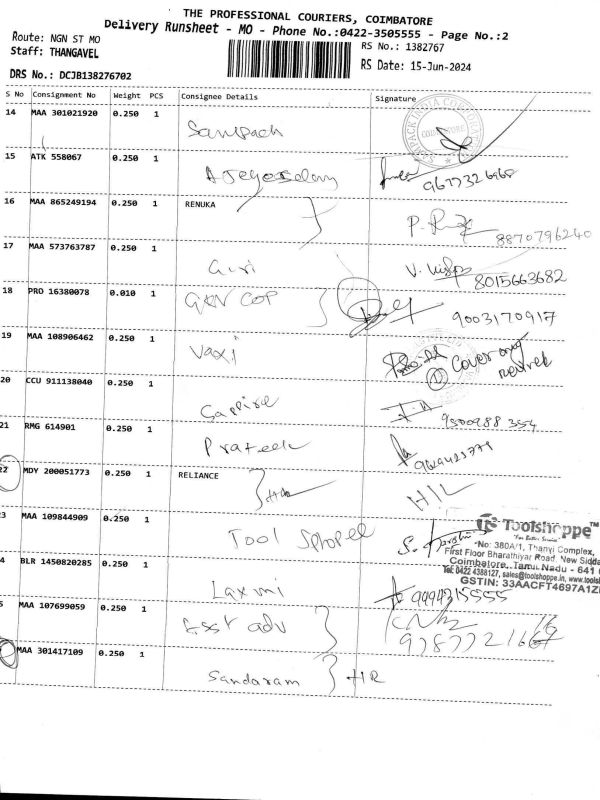 THE PROFESSIONAL COURIERS, COIMBATORE
Delivery Runsheet - MO - Phone No.:0422-3505555 - Page No.:2
Route: NGN ST MO
RS No.: 1382767
Staff: THANGAVEL
RS Date: 15-Jun-2024
DRS No.: DCJB138276702
S No Consignment No Weight PCS Consignee Details Signature
14 MAA 301021920 0.250 1 Sampack
15 ATK 558067 0.250 1 9677326968
16 MAA 865249194 0.250 1 RENUKA 8870796240
17 MAA 573763787 0.250 1 Giri 8015663682
18 PRO 16380078 0.010 1 GKN COP 9003170917
19 MAA 108906462 0.250 1 Vaxi ① Cover only
20 CCU 911138040 0.250 1 Sappire 9500988 354
21 RMG 614901 0.250 1 Prateek
22 MDY 200051773 0.250 1 RELIANCE H/L
3 MAA 109844909 0.250 1 Tool
Toolshoppe™
No: 380A/1, Thanvi Complex,
First Floor Bharathiyar Road, New Sidda
Coimbatore, Tamil Nadu - 641
Tel: 0422 4388127, sales@toolshoppe.in, www.tools
GSTIN: 33AACFT4697A1Z
4 BLR 1450820285 0.250 1 Laxmi 9994315555
5 MAA 107699059 0.250 1 adv
MAA 301417109 0.250 1 Sandaram